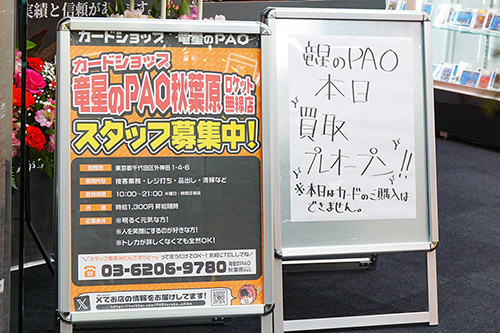 実績と信頼があります
カードショップ 竜星のPAO
カードショップ
竜星のPAO秋葉原
ロケット
無線店
スタッフ募集中!
勤務地 東京都千代田区外神田1-4-6
業務内容 接客業務・レジ打ち・品出し・清掃など
勤務時間 10:00~21:00
待遇 時給1,300円 昇給随時
応募条件 ※明るく元気な方!
※人を笑顔にするのが好きな方!
※トレカが詳しくなくても全然OK!
「スタッフ募集みたんですけどー」って言うだけでOKー!気軽にTELしてね!
☎03-6206-9780
竜星のPAO
秋葉原
Xでお店の情報をお届けしてます!
竜星のPAO
本日
買取
プレオープン!!
※本日はカードのご購入は
できません。